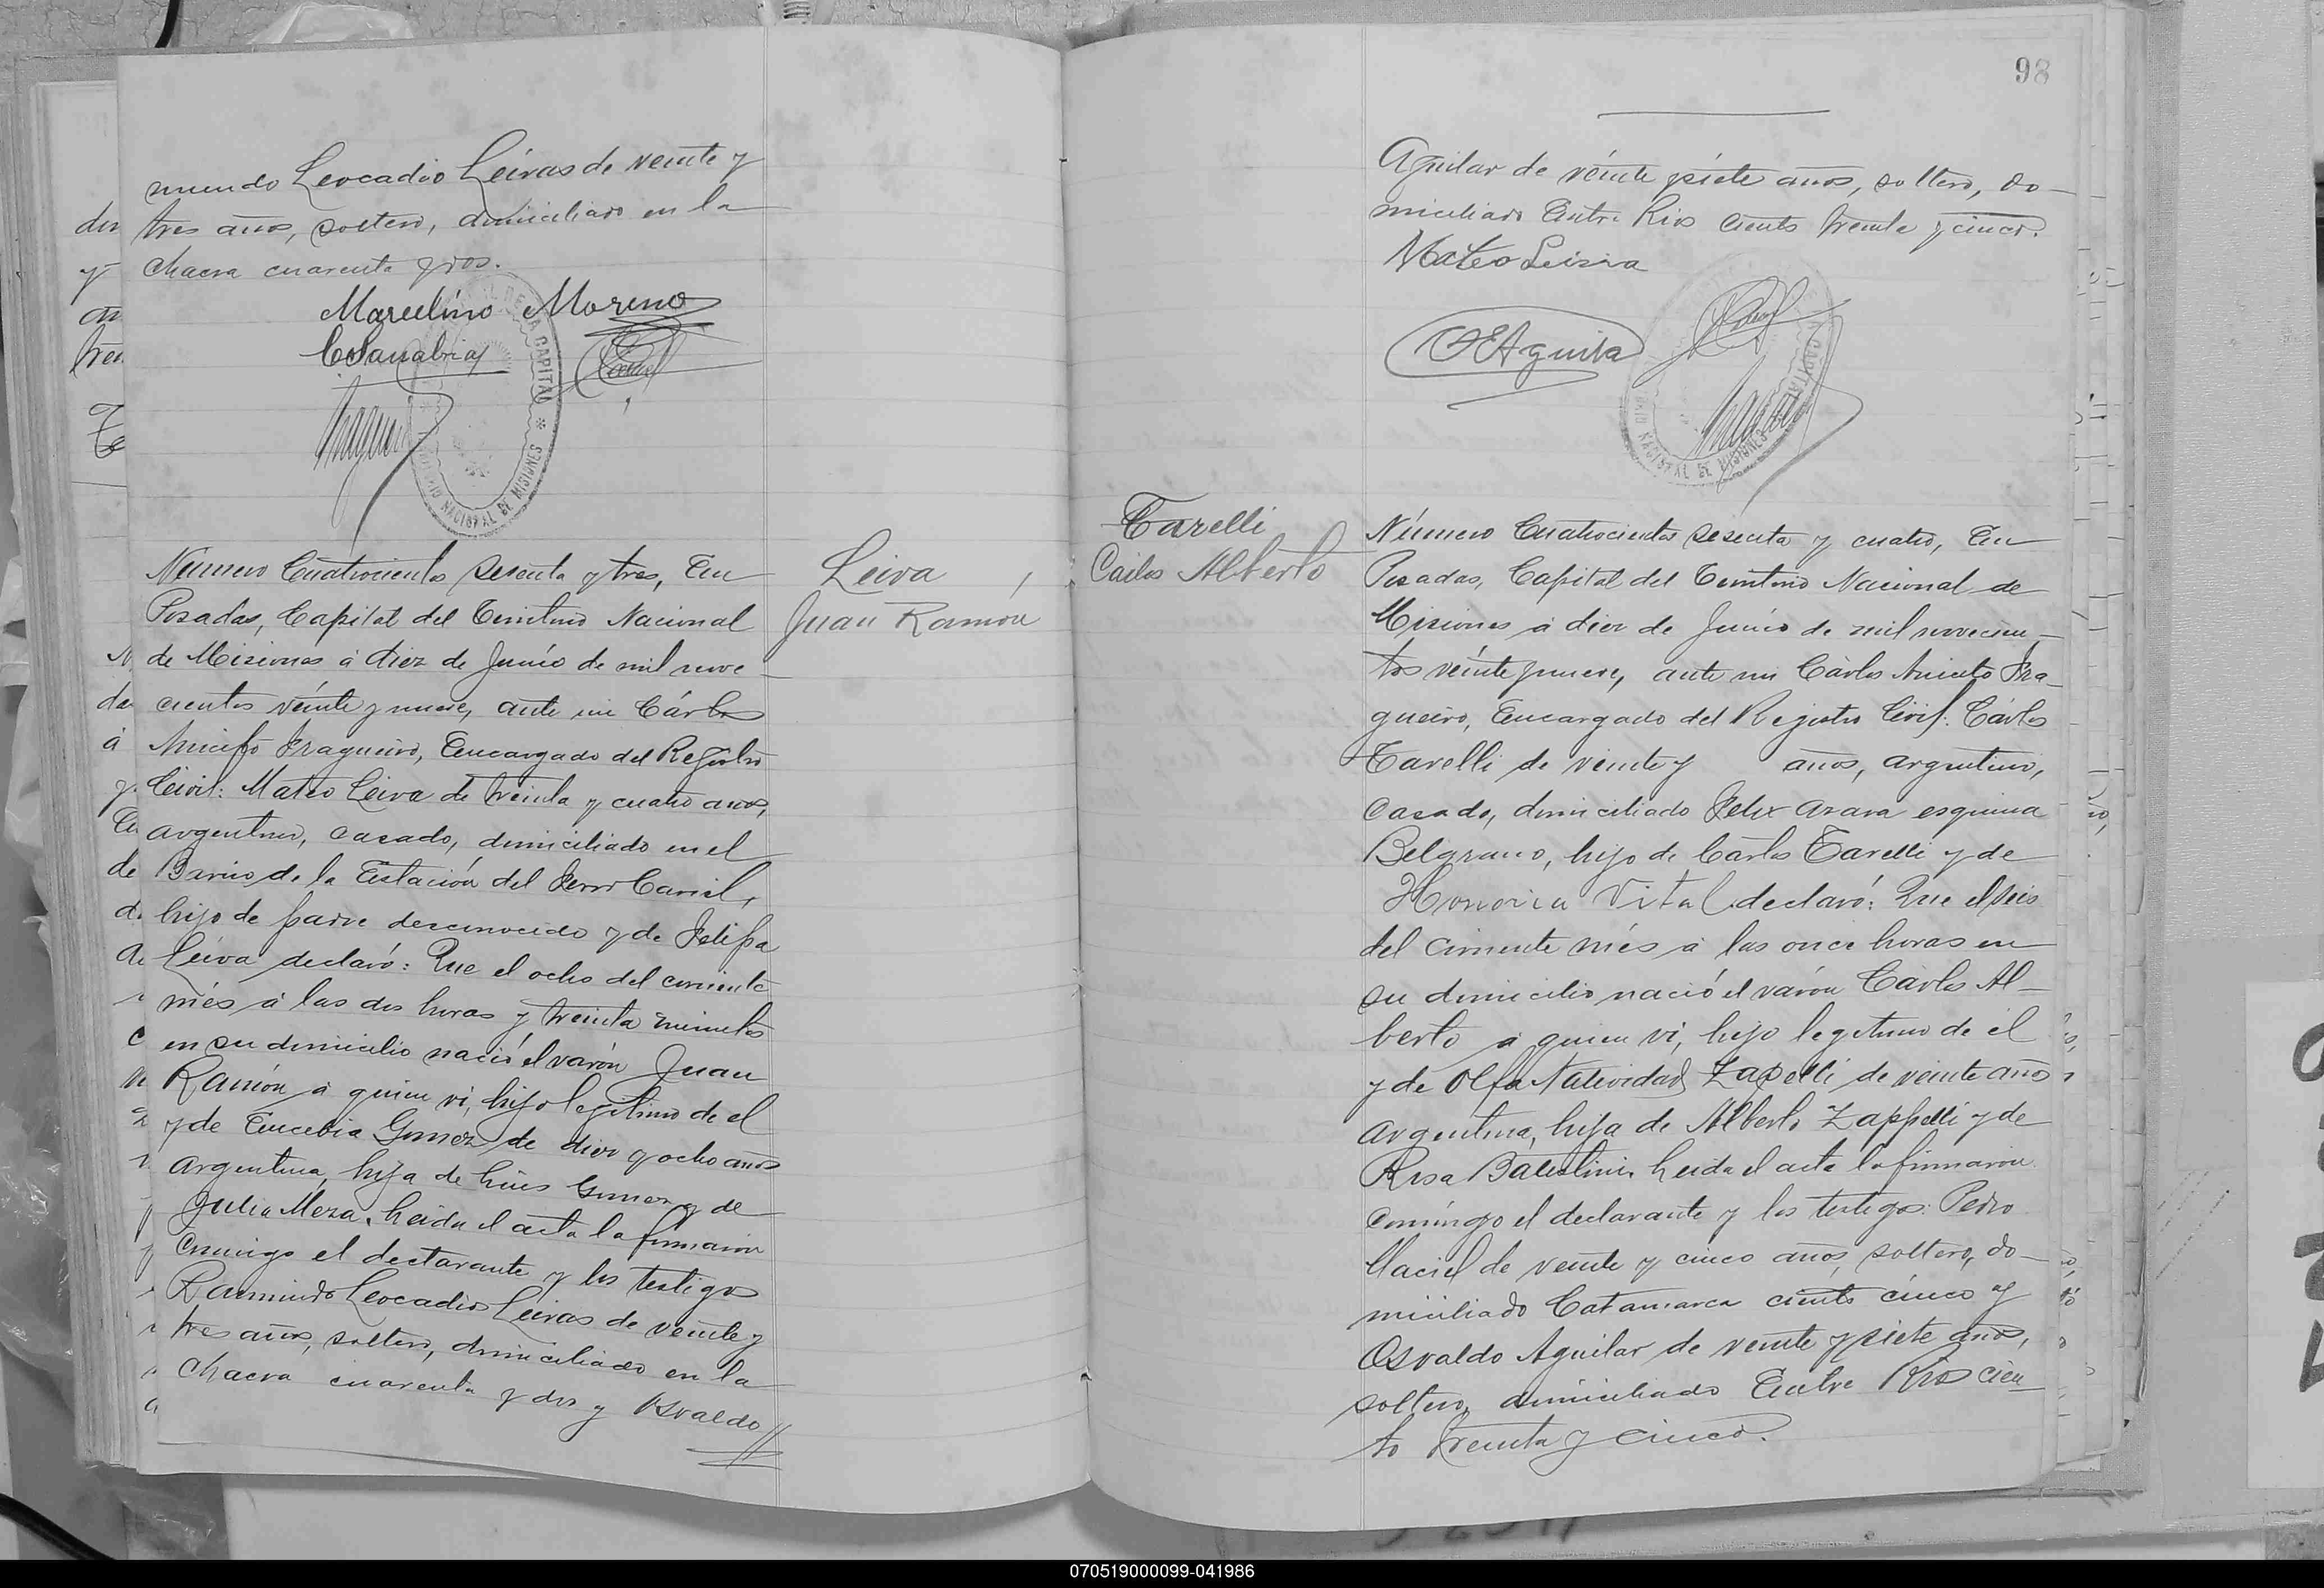 mundo Leocadio Leivas de veinte y
tres años, soltero, domiciliado en la
chacra cuarenta y dos.
Marcelino Moreno
CSanabria
CAPITAL * MISIONES
Número Cuatrocientos sesenta y tres, En
Posadas, Capital del Territorio Nacional
de Misiones á diez de Junio de mil nove
cientos veínte y nueve, ante mi Cárlos
Aniceto Fragueiro, Encargado del Registro
Civil: Mateo Leiva de treinta y cuatro años,
argentino, casado, domiciliado en el
Barrio de la Estación del Ferro Carril,
hijo de padre desconocido y de Felipa
Leiva declaró: Que el ocho del corriente
més á las dos horas y treinta minutos
en su domicilio nació el varón Juan
Ramón á quien vi, hijo legítimo de el
y de Eusebia Gomez de diez y ocho años
argentina, hija de Luis Gomez y de
Julia Meza. Leida el acta la firmaron
conmigo el declarante y los testigos
Raimundo Leocadio Leivas de veinte y
tres años, soltero, domiciliado en la
Chacra cuarenta y dos y Osvaldo //
Leiva
Juan Ramón
98
Aguilar de veinte y siete años, soltero, do-
miciliado Entre Rios ciento treinta y cinco.
Mateo Leiva
OEAguila
Tarelli
Carlos Alberto
Número Cuatrocientos sesenta y cuatro, En
Posadas, Capital del Territorio Nacional de
Misiones á diez de Junio de mil novecien-
tos veínte y nueve, ante mi Cárlos Aniceto Fra-
gueiro, Encargado del Registro Civil: Cárlos
Tarelli de veinte y años, argentino,
casado, domiciliado Felix Azara esquina
Belgrano, hijo de Cárlos Tarelli y de
Honoria Vital declaró: Que el seis
del corriente més á las once horas en
su domicilio nació el varón Cárlos Al-
berto á quien vi, hijo legítimo de él
y de Olfa Natividad Zapelli de veinte años
argentina, hija de Alberto Zappelli y de
Rosa Balestini. Leida el acta la firmaron
conmigo el declarante y los testigos: Pedro
Maciel de veinte y cinco años, soltero, do-
miciliado Catamarca ciento cinco y
Osvaldo Aguilar de veinte y siete años,
soltero, domiciliado Entre Rios cien-
to treinta y cinco.
070519000099-041986